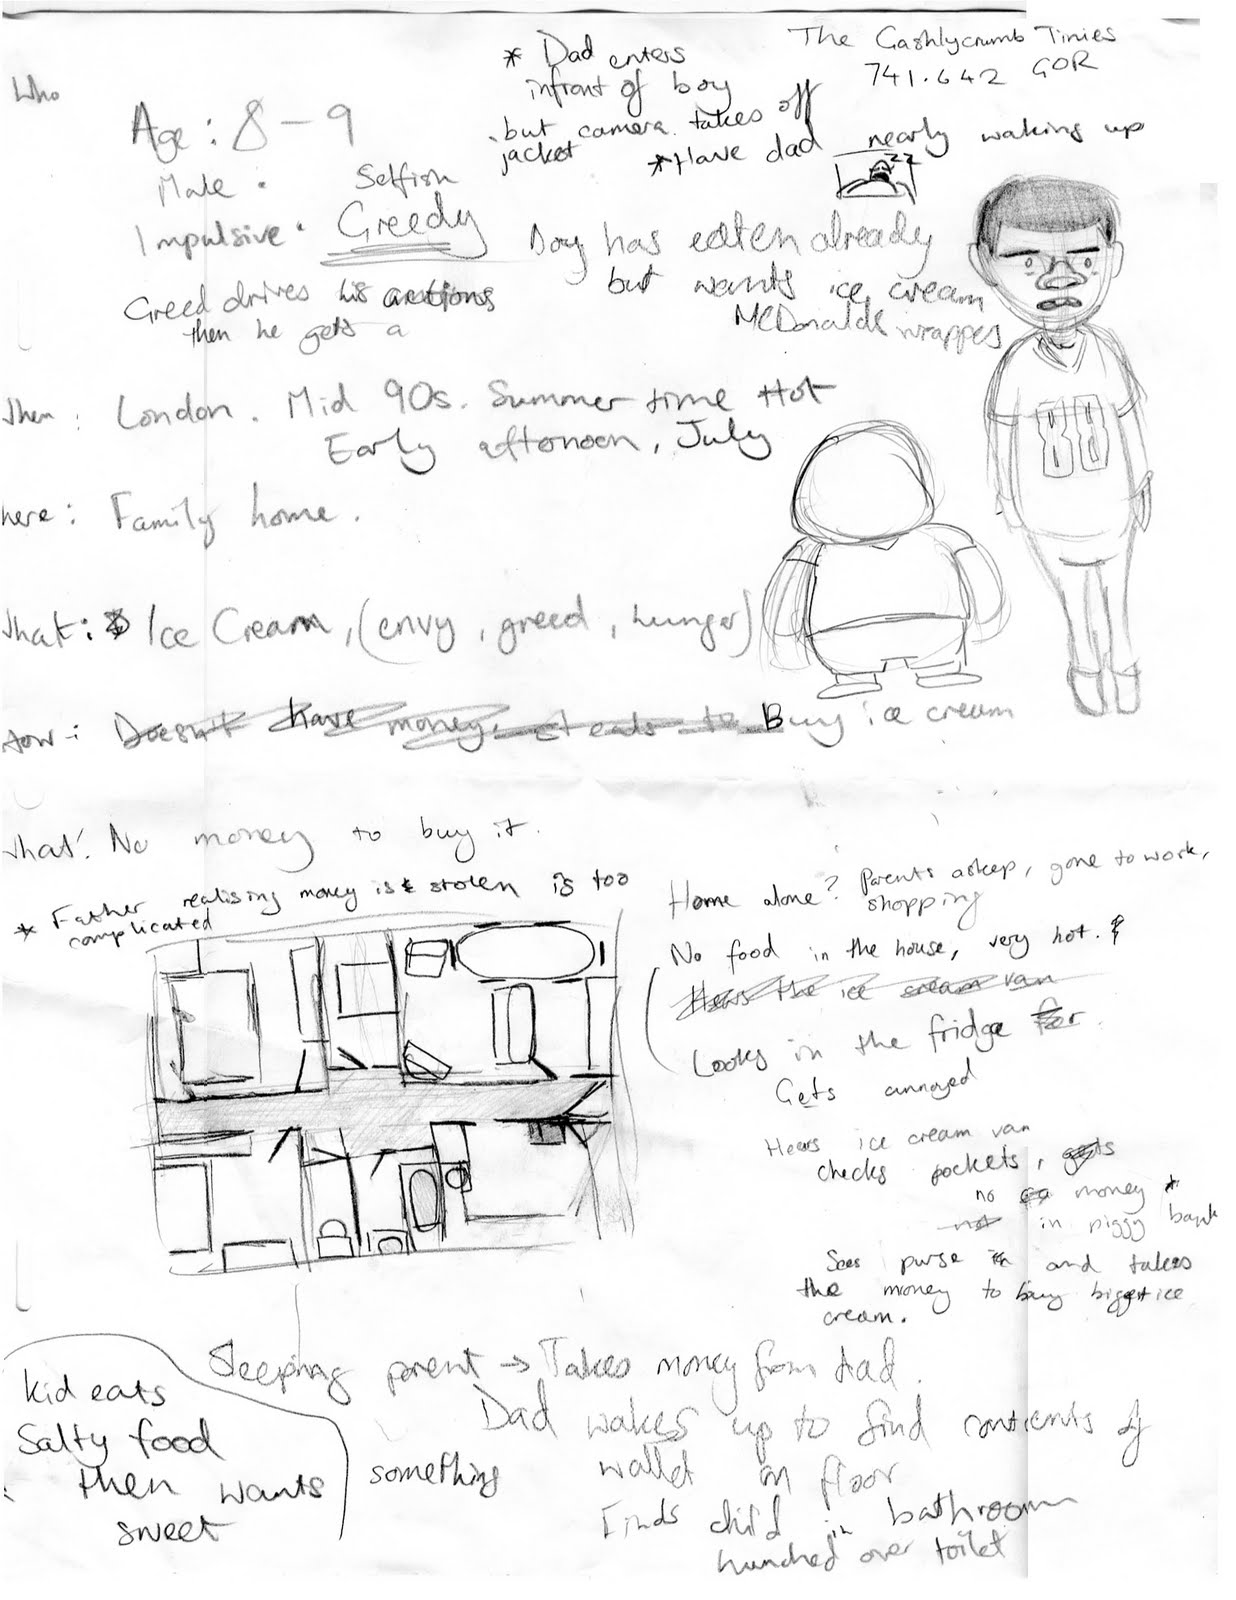 The Gashlycrumb Tinies
741.642 GOR
* Dad enters
infront of boy
but camera takes off
jacket
* Have dad nearly waking up
zz
Who
Age: 8-9
Male. Selfish
Impulsive. Greedy
Greed drives his actions
then he gets a
Boy has eaten already
but wants ice cream
McDonalds wrappes
83
when: London. Mid 90s. Summer time Hot
Early afternoon, July
here: Family home.
what: Ice Cream, (envy, greed, hunger)
How: Doesn't have money, steals to Buy ice cream
what: No money to buy it.
* Father realising money is stolen is too
complicated
Home alone? Parents asleep, gone to work,
shopping
No food in the house, very hot.
Hears the ice cream van
Looks in the fridge for
Gets annoyed
Hears ice cream van
checks pockets, gets
no money *
not in piggy bank
Sees purse in and takes
the money to buy biggest ice
cream.
Sleeping parent → Takes money from dad.
Dad wakes up to find contents of
wallet on floor
something
Finds child in bathroom
hunched over toilet
kid eats
Salty food
then wants
sweet